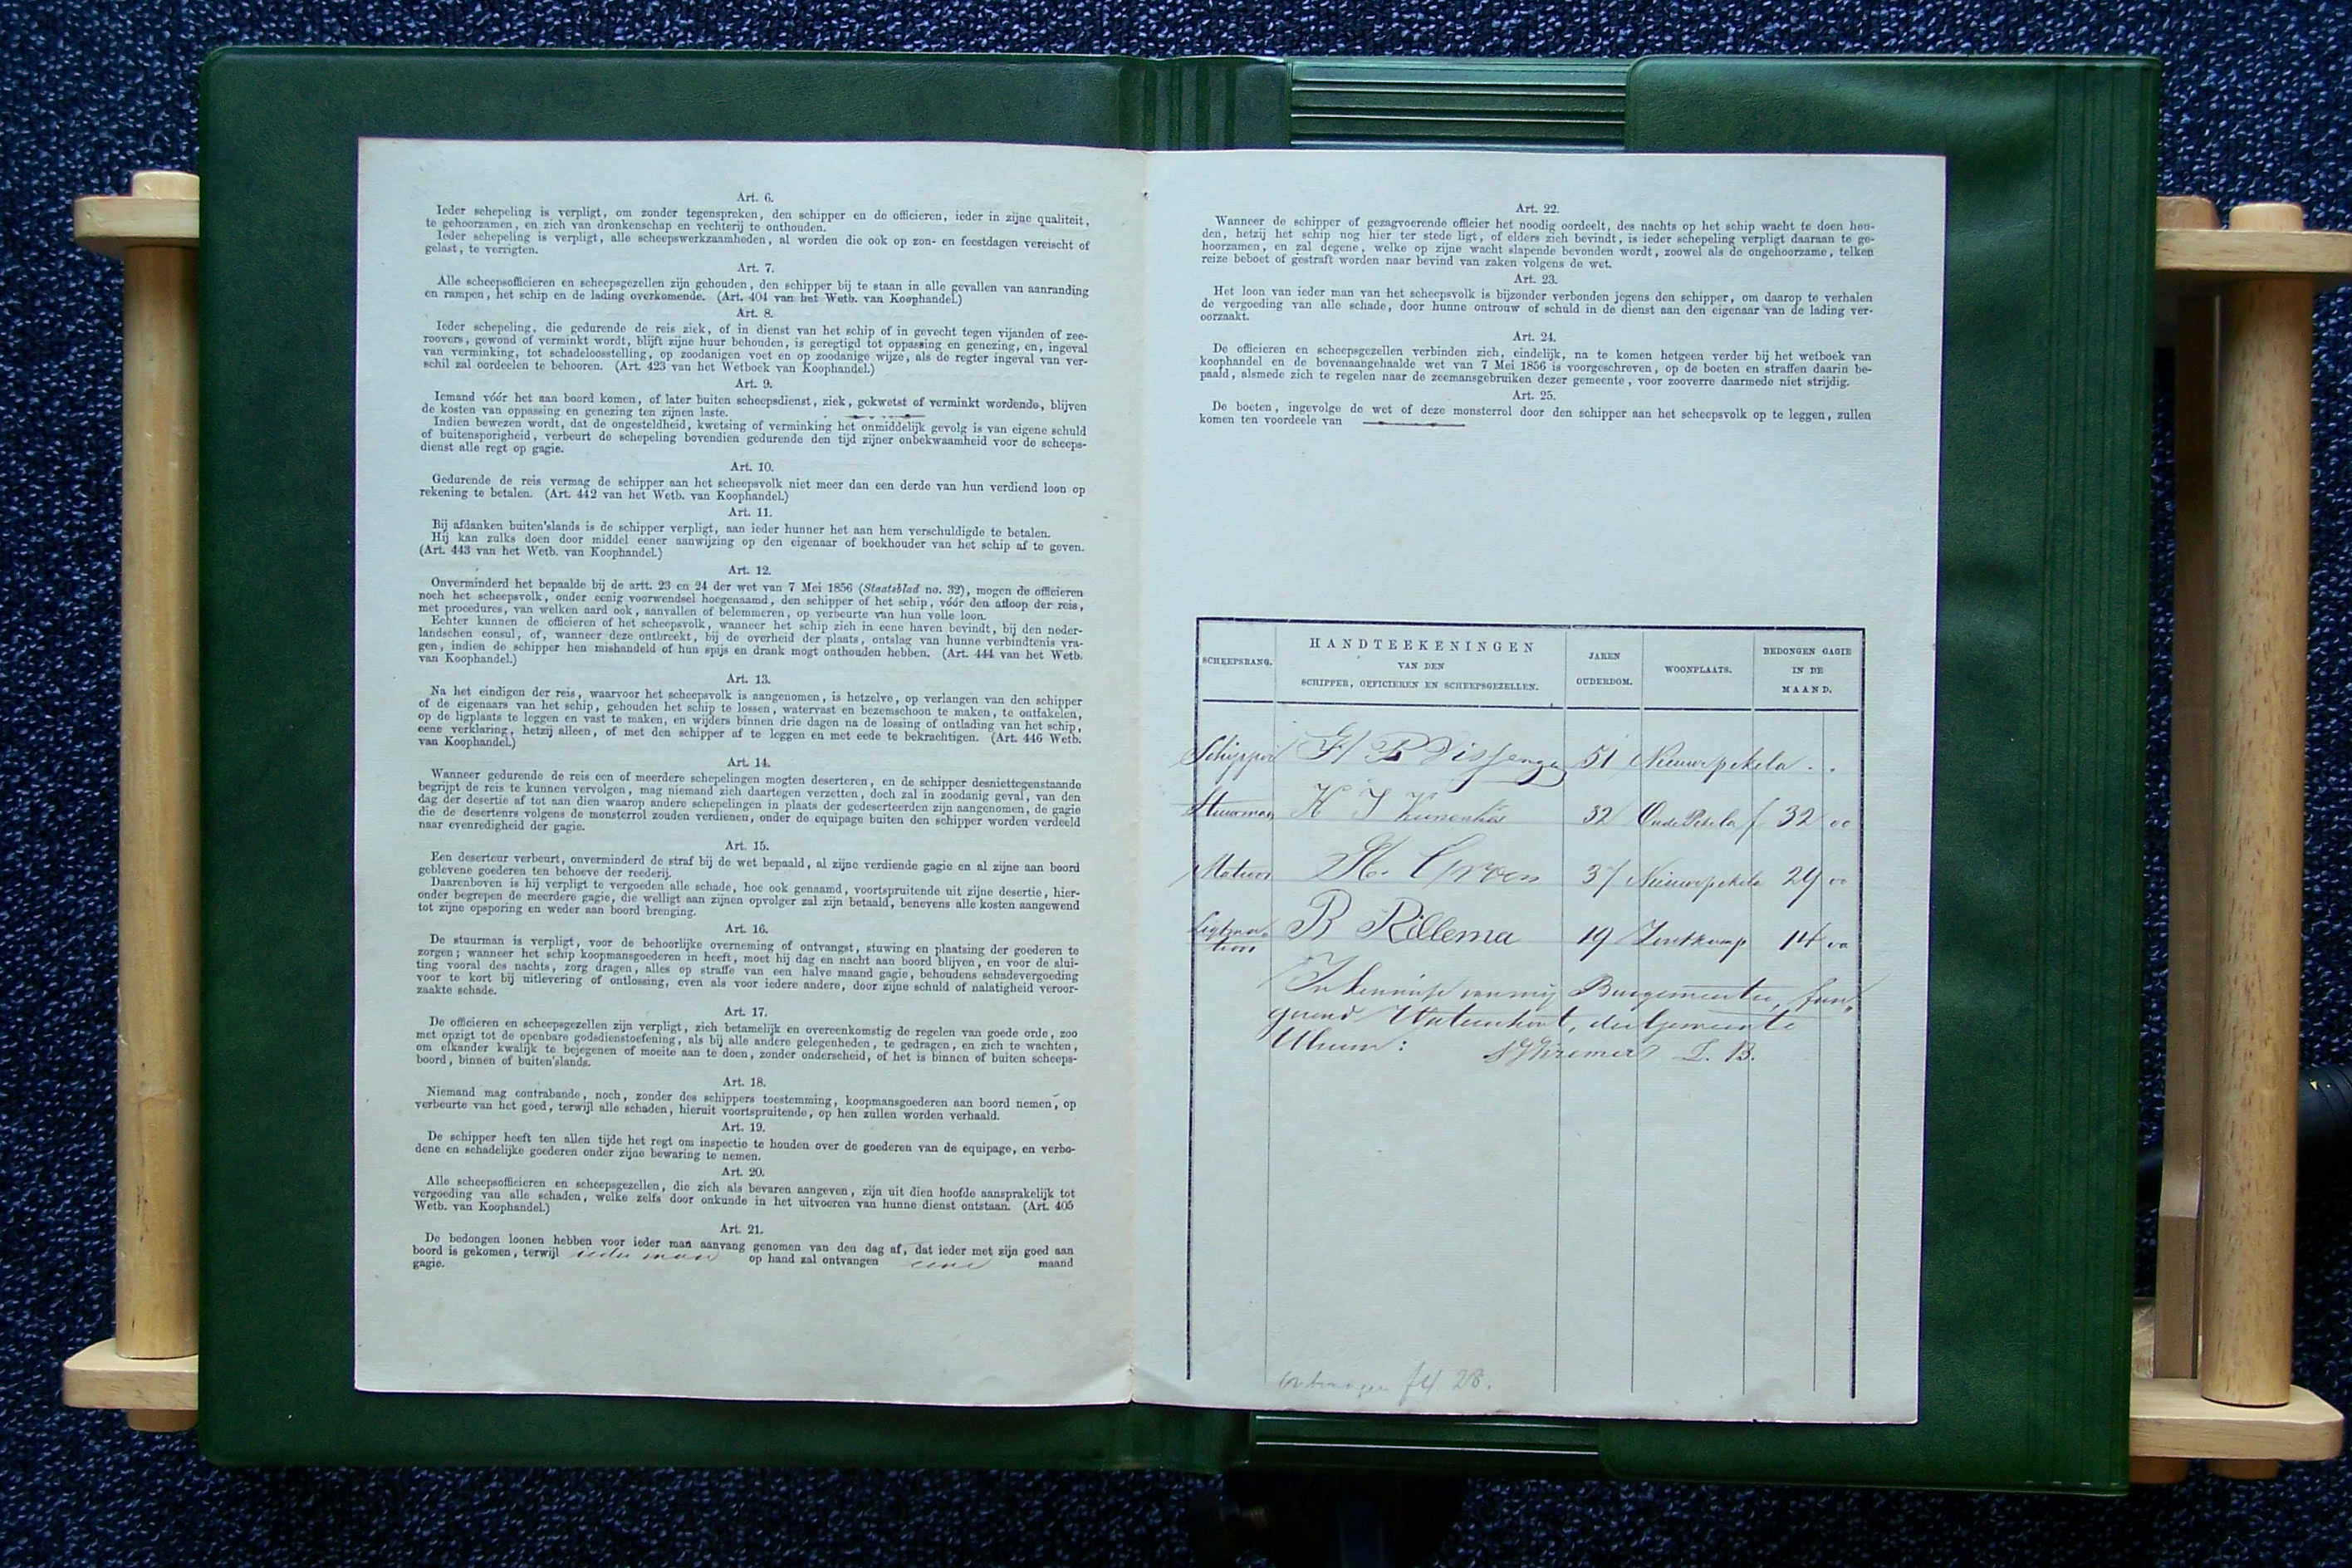 Art. 6.
Ieder schepeling is verpligt, om zonder tegenspreken, den schipper en de officieren, ieder in zijne qualiteit,
te gehoorzamen, en zich van dronkenschap en vechterij te onthouden.
Ieder schepeling is verpligt, alle scheepswerkzaamheden, al worden die ook op zon- en feestdagen vereischt of
gelast, te verrigten.
Art. 7.
Alle scheepsofficieren en scheepsgezellen zijn gehouden, den schipper bij te staan in alle gevallen van aanranding
en rampen, het schip en de lading overkomende. (Art. 404 van het Wetb. van Koophandel.)
Art. 8.
Ieder schepeling, die gedurende de reis ziek, of in dienst van het schip of in gevecht tegen vijanden of zee-
roovers, gewond of verminkt wordt, blijft zijne huur behouden, is geregtigd tot oppassing en genezing, en, ingeval
van verminking, tot schadeloosstelling, op zoodanigen voet en op zoodanige wijze, als de regter ingeval van ver-
schil zal oordeelen te behooren. (Art. 423 van het Wetboek van Koophandel.)
Art. 9.
Iemand vóór het aan boord komen, of later buiten scheepsdienst, ziek, gekwetst of verminkt wordende, blijven
de kosten van oppassing en genezing ten zijnen laste.
Indien bewezen wordt, dat de ongesteldheid, kwetsing of verminking het onmiddelijk gevolg is van eigene schuld
of buitensporigheid, verbeurt de schepeling bovendien gedurende den tijd zijner onbekwaamheid voor de scheeps-
dienst alle regt op gagie.
Art. 10.
Gedurende de reis vermag de schipper aan het scheepsvolk niet meer dan een derde van hun verdiend loon op
rekening te betalen. (Art. 442 van het Wetb. van Koophandel.)
Art. 11.
Bij afdanken buiten'slands is de schipper verpligt, aan ieder hunner het aan hem verschuldigde te betalen.
Hij kan zulks doen door middel eener aanwijzing op den eigenaar of boekhouder van het schip af te geven.
(Art. 443 van het Wetb. van Koophandel.)
Art. 12.
Onverminderd het bepaalde bij de artt. 23 en 24 der wet van 7 Mei 1856 (Staatsblad no. 32), mogen de officieren
noch het scheepsvolk, onder eenig voorwendsel hoegenaamd, den schipper of het schip, vóór den afloop der reis,
met procedures, van welken aard ook, aanvallen of belemmeren, op verbeurte van hun volle loon.
Echter kunnen de officieren of het scheepsvolk, wanneer het schip zich in eene haven bevindt, bij den neder-
landschen consul, of, wanneer deze ontbreekt, bij de overheid der plaats, ontslag van hunne verbindtenis vra-
gen, indien de schipper hen mishandeld of hun spijs en drank mogt onthouden hebben. (Art. 444 van het Wetb.
van Koophandel.)
Art. 13.
Na het eindigen der reis, waarvoor het scheepsvolk is aangenomen, is hetzelve, op verlangen van den schipper
of de eigenaars van het schip, gehouden het schip te lossen, watervast en bezemschoon te maken, te onttakelen,
op de ligplaats te leggen en vast te maken, en wijders binnen drie dagen na de lossing of ontlading van het schip,
eene verklaring, hetzij alleen, of met den schipper af te leggen en met eede te bekrachtigen. (Art. 446 Wetb.
van Koophandel.)
Art. 14.
Wanneer gedurende de reis een of meerdere schepelingen mogten deserteren, en de schipper desniettegenstaande
begrijpt de reis te kunnen vervolgen, mag niemand zich daartegen verzetten, doch zal in zoodanig geval, van den
dag der desertie af tot aan dien waarop andere schepelingen in plaats der gedeserteerden zijn aangenomen, de gagie
die de deserteurs volgens de monsterrol zouden verdienen, onder de equipage buiten den schipper worden verdeeld
naar evenredigheid der gagie.
Art. 15.
Een deserteur verbeurt, onverminderd de straf bij de wet bepaald, al zijne verdiende gagie en al zijne aan boord
geblevene goederen ten behoeve der reederij.
Daarenboven is hij verpligt te vergoeden alle schade, hoe ook genaamd, voortspruitende uit zijne desertie, hier-
onder begrepen de meerdere gagie, die welligt aan zijnen opvolger zal zijn betaald, benevens alle kosten aangewend
tot zijne opsporing en weder aan boord brenging.
Art. 16.
De stuurman is verpligt, voor de behoorlijke overneming of ontvangst, stuwing en plaatsing der goederen te
zorgen; wanneer het schip koopmansgoederen in heeft, moet hij dag en nacht aan boord blijven, en voor de slui-
ting vooral des nachts, zorg dragen, alles op straffe van een halve maand gagie, behoudens schadevergoeding
voor te kort bij uitlevering of ontlossing, even als voor iedere andere, door zijne schuld of nalatigheid veroor-
zaakte schade.
Art. 17.
De officieren en scheepsgezellen zijn verpligt, zich betamelijk en overeenkomstig de regelen van goede orde, zoo
met opzigt tot de openbare godsdienstoefening, als bij alle andere gelegenheden, te gedragen, en zich te wachten,
om elkander kwalijk te bejegenen of moeite aan te doen, zonder onderscheid, of het is binnen of buiten scheeps-
boord, binnen of buiten'slands.
Art. 18.
Niemand mag contrabande, noch, zonder des schippers toestemming, koopmansgoederen aan boord nemen, op
verbeurte van het goed, terwijl alle schaden, hieruit voortspruitende, op hen zullen worden verhaald.
Art. 19.
De schipper heeft ten allen tijde het regt om inspectie te houden over de goederen van de equipage, en verbo-
dene en schadelijke goederen onder zijne bewaring te nemen.
Art. 20.
Alle scheepsofficieren en scheepsgezellen, die zich als bevaren aangeven, zijn uit dien hoofde aansprakelijk tot
vergoeding van alle schaden, welke zelfs door onkunde in het uitvoeren van hunne dienst ontstaan. (Art. 405
Wetb. van Koophandel.)
Art. 21.
De bedongen loonen hebben voor ieder man aanvang genomen van den dag af, dat ieder met zijn goed aan
boord is gekomen, terwijl ieder man op hand zal ontvangen eene maand
gagie.
Art. 22.
Wanneer de schipper of gezagvoerende officier het noodig oordeelt, des nachts op het schip wacht te doen hou-
den, hetzij het schip nog hier ter stede ligt, of elders zich bevindt, is ieder schepeling verpligt daaraan te ge-
hoorzamen, en zal degene, welke op zijne wacht slapende bevonden wordt, zoowel als de ongehoorzame, telken
reize beboet of gestraft worden naar bevind van zaken volgens de wet.
Art. 23.
Het loon van ieder man van het scheepsvolk is bijzonder verbonden jegens den schipper, om daarop te verhalen
de vergoeding van alle schade, door hunne ontrouw of schuld in de dienst aan den eigenaar van de lading ver-
oorzaakt.
Art. 24.
De officieren en scheepsgezellen verbinden zich, eindelijk, na te komen hetgeen verder bij het wetboek van
koophandel en de bovenaangehaalde wet van 7 Mei 1856 is voorgeschreven, op de boeten en straffen daarin be-
paald, alsmede zich te regelen naar de zeemansgebruiken dezer gemeente, voor zooverre daarmede niet strijdig.
Art. 25.
De boeten, ingevolge de wet of deze monsterrol door den schipper aan het scheepsvolk op te leggen, zullen
komen ten voordeele van
SCHEEPSRANG. HANDTEEKENINGEN VAN DEN SCHIPPER, OFFICIEREN EN SCHEEPSGEZELLEN. JAREN OUDERDOM. WOONPLAATS. BEDONGEN GAGIE IN DE MAAND.
Schipper 51 Nieuwe pekela . .
Stuurman K 32 Oude Pekela f 32 00
Matroos 37 Nieuwe pekela 29 00
Ligtma-
troos B Rillema 19 Zoutkamp 14 00
In kennisse van mij Burgemeester, fun-
gerend Waterschout, der Gemeente
Ulrum: L. B.
f4 28.